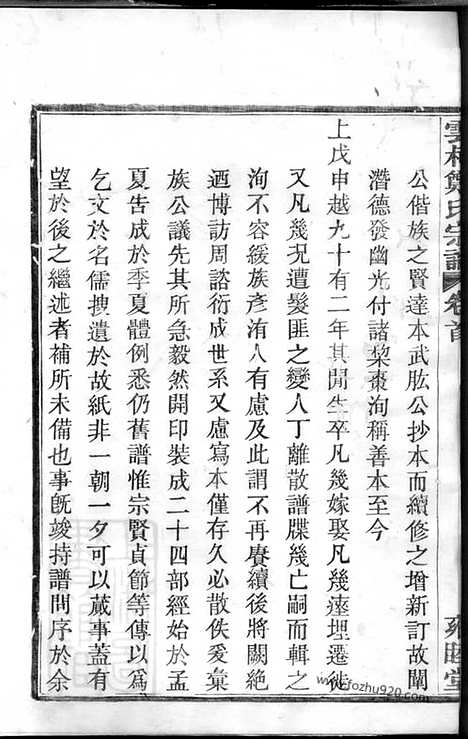 雲村鄭氏宗譜 卷首 雍睦堂
公偕族之賢達本武肱公抄本而續修之增新訂故闡
潛德發幽光付諸棃棗洵稱善本至今
上戊申越九十有二年其閒生卒凡幾嫁娶凡幾遠埋遷徙
又凡幾況遭髮匪之變人丁離散譜牒幾亡嗣而輯之
洵不容緩族彥洧人有慮及此謂不再賡續後將闕絶
迺博訪周諮衍成世系又慮寫本僅存久必散佚爰稟
族公議先其所急毅然開印裝成二十四部經始於孟
夏吿成於季夏體例悉仍舊譜惟宗賢貞節等傳以爲
乞文於名儒搜遺於故紙非一朝一夕可以蕆事蓋有
望於後之繼述者補所未備也事旣竣持譜問序於余
www.fozhu920.com